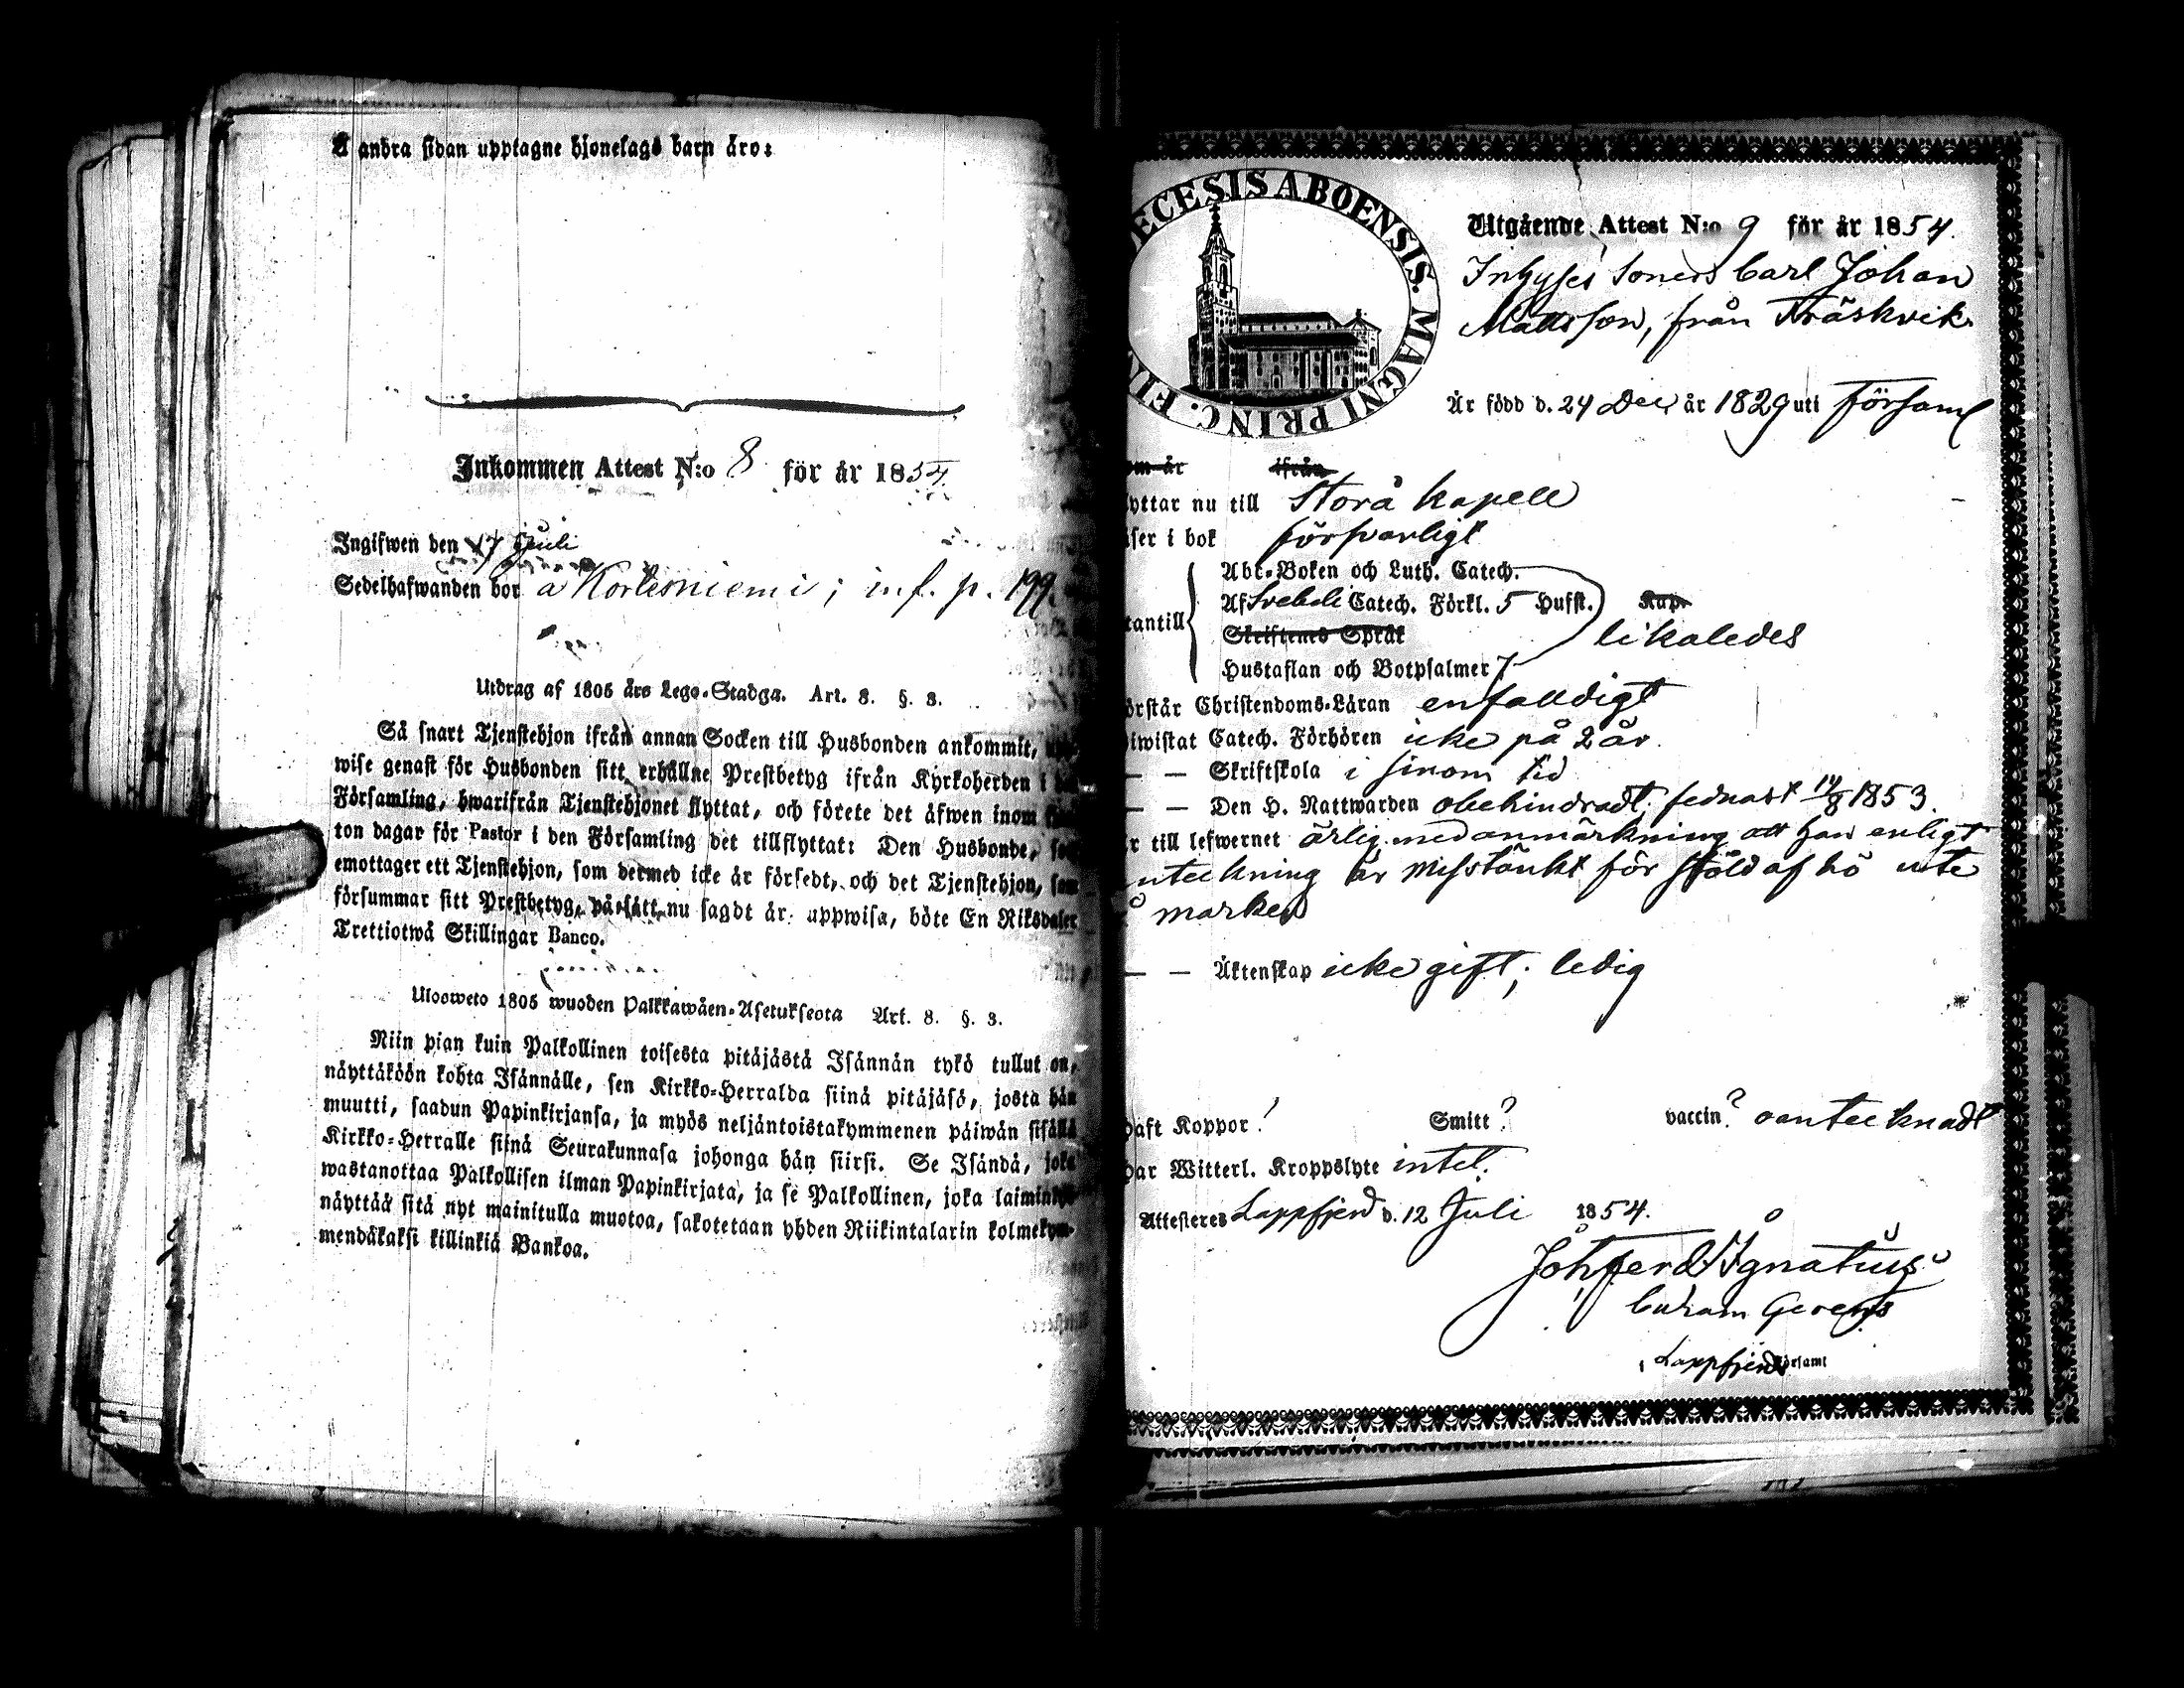 Å andra sidan upptagne hjonelags barn äro:
Inkommen Attest N:o 8 för år 1854.
Ingifwen den 17 Juli
Sedelhafwanden bor å Kortesniemi; inf. p. 199.
Utdrag af 1805 års Lego-Stadga. Art. 8. §. 3.
Så snart Tjenstehjon ifrån annan Socken till Husbonden ankommit,
wise genast för Husbonden sitt erhållne Prestbetyg ifrån Kyrkoherden i
Församling, hwarifrån Tjenstehjonet flyttat, och förete det äfwen inom
ton dagar för Pastor i den Församling det tillflyttat: Den Husbonde,
emottager ett Tjenstehjon, som dermed icke är försedt, och det Tjenstehjon, som
försummar sitt Prestbetyg, på sätt nu sagdt är uppwisa, böte En Riksdaler
Trettiotwå Skillingar Banco.
Ulosweto 1805 wuoden Palkkawäen-Asetuksesta Art. 8. §. 3.
Niin pian kuin Palkollinen toisesta pitäjästä Isännän tykö tullut on,
näyttäköön kohta Isännälle, sen Kirkko-Herralda siinä pitäjäsä, josta hän
muutti, saadun Papinkirjansa, ja myös neljäntoistakymmenen päiwän sisällä
Kirkko-Herralle siinä Seurakunnasa johonga hän siirsi. Se Isändä, joka
wastanottaa Palkollisen ilman Papinkirjata, ja se Palkollinen, joka
näyttää sitä nyt mainitulla muotoa, sakotetaan yhden Riikintalarin kolmekym-
mendäkaksi killinkiä Bankoa.
ECESIS ABOENSIS. MAGNI PRINC. FI
Utgående Attest N:o 9 för år 1854.
Inhyses Sonen Carl Johan
Mattsson, från Träskvik
Är född d. 24 Dec år 1829 uti församl
om är ifrån
yttar nu till Storå kapell
ser i bok försvarligt
Abc-Boken och Luth. Catech.
Af Svebeli Catech. Förkl. 5 Hufst. Kap.
tantill Skriftenes Språk likaledes
Hustaflan och Botpsalmer 7
örstår Christendoms-Läran enfaldigt
iwistat Catech. Förhören icke på 2 år.
— — Skriftskola i sinom tid
— — Den H. Nattwarden obehindradt, sednast 14/8 1853.
r till lefwernet ärlig med anmärkning att han enligt
nteckning är misstänkt för stöld af hö ute
å marken
— — Äktenskap icke gift; ledig
haft Koppor? Smitt? vaccin? oantecknadt
har Witterl. Kroppslyte intet.
Attesteres Lappfjerd d. 12 Juli 1854.
Joh ferd Ignatius
Curam Gerens
i Lappfjerds Församl